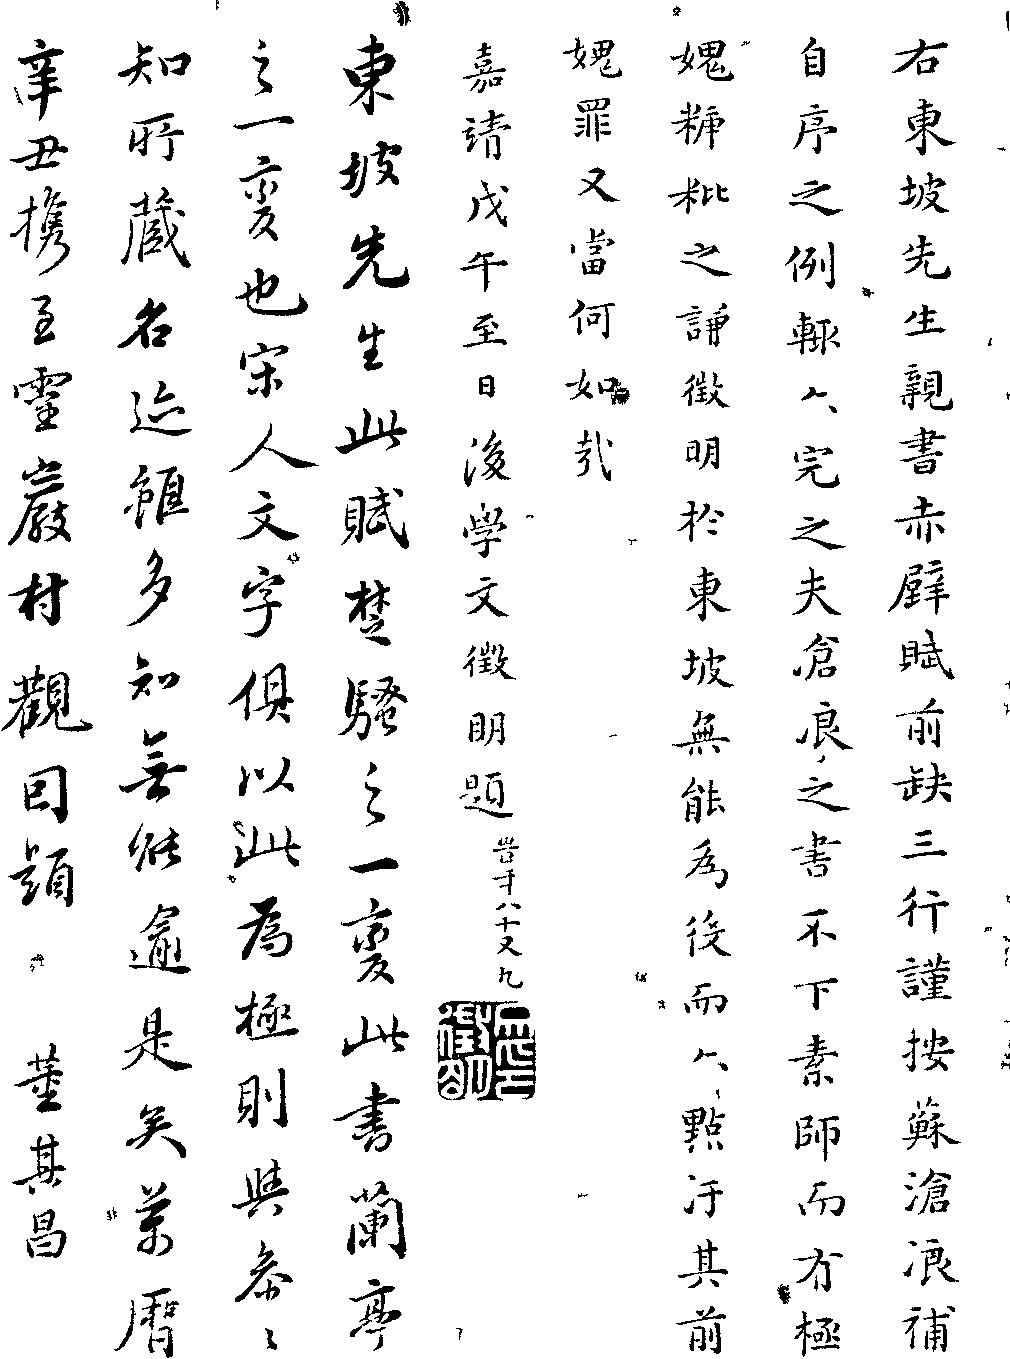 右東坡先生親書赤壁賦前缺三行謹按蘇滄浪補
自序之例輙亦完之夫滄浪之書不下素師而有極
媿糠粃之謙徵明於東坡無能為役而亦點汙其前
媿罪又當何如哉
嘉靖戊午至日後學文徵明題旹年八十又九
東坡先生此賦楚騷之一變此書蘭亭
之一變也宋人文字俱以此為極則與叅〻
知所藏名迹雖多知無能逾是矣萬曆
辛丑攜至靈巖村觀因題 董其昌